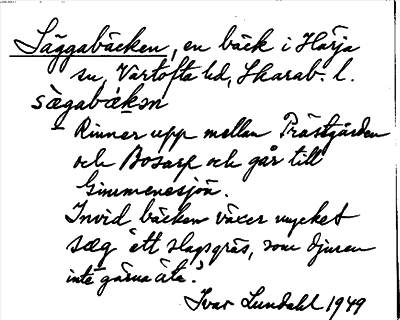 Säggabäcken, en bäck i Härja
sn, Vartofta hd, Skarab. l.
sägabäkən
Rinner upp mellan Prästgården
och Bosarp och går till
Gimmenesjön.
Invid bäcken växer mycket
sæg "ett slags gräs, som djuren
inte gärna äta".
Ivar Lundahl 1949